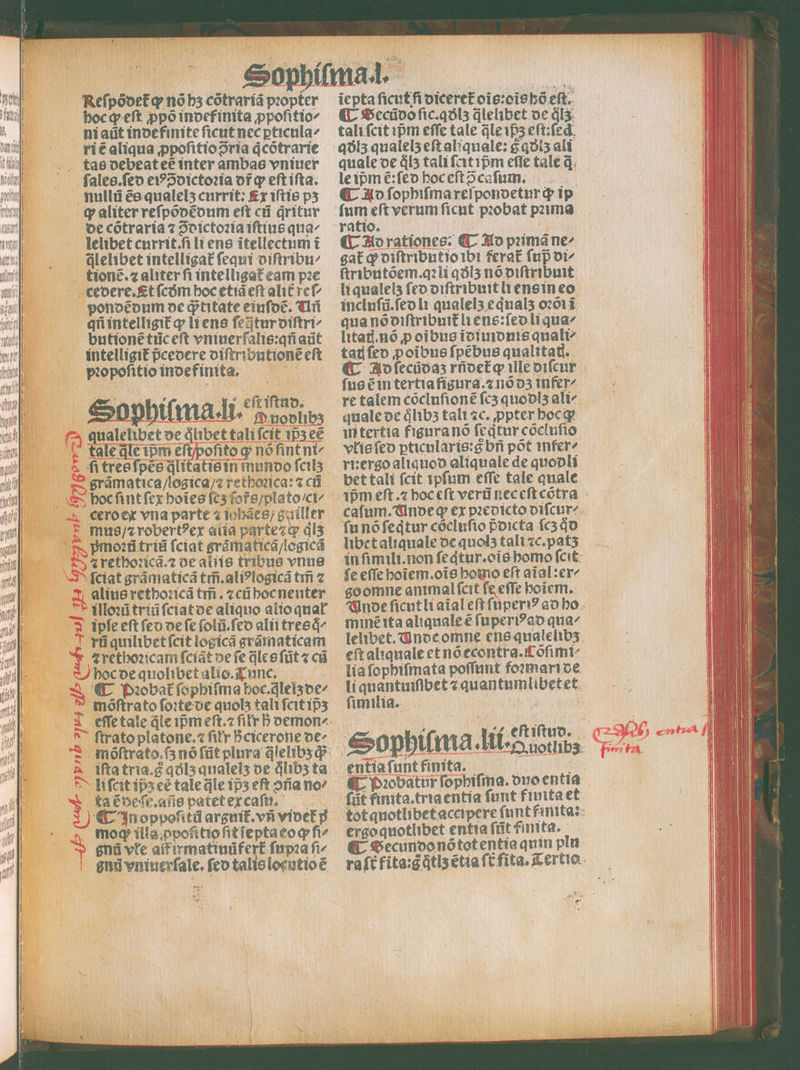 Sophisma.I.
Respõdet̃ ꝙ nõ hꝫ cõtrariã propter
hoc ꝙ est ꝓpõ indefinita ꝓpositio⸗
ni aũt indefinite sicut nec ꝑticula⸗
ri ẽ aliqua ꝓpositio ↄ̃ria q̃ cõtrarie
tas debeat eẽ inter ambas vniuer
sales. sed eiꝰ ↄ̃dictoria dr̃ ꝙ est ista.
nullũ ẽs qualelꝫ currit: Ex istis pꝫ
ꝙ aliter respõdẽdum est cũ q̃ritur
de cõtraria ⁊ ↄ̃dictoria istius qua⸗
lelibet currit. si li ens ĩtellectum ĩ
q̃lelibet intelligat̃ sequi distribu⸗
tionẽ. ⁊ aliter si intelligat̃ eam pre
cedere. Et scd̃m hoc etiã est alit̃ res⸗
pondẽdum de q̃titate eiusdẽ. Uñ
qñ intelligit̃ ꝙ li ens seq̃tur distri⸗
butionẽ tũc est vniuersalis: qñ aũt
intelligit̃ p̃cedere distributionẽ est
propositio indefinita.
Sophisma.ii. est istud.
Quodlibꝫ
qualelibet de q̃libet tali scit ip̃ꝫ eẽ
tale q̃le ip̃m est/posito ꝙ nõ sint ni⸗
si tres spẽs q̃litatis in mundo scilꝫ
grãmatica/logica/⁊ rethorica: ⁊ cũ
hoc sint sex hoies scꝫ sort̃s/plato/ci⸗
cero ex vna parte ⁊ iohães/guiller
mus/⁊ robertꝰ ex alia parte ⁊ ꝙ q̃lꝫ
p̃morũ triũ sciat grãmaticã/logicã
⁊ rethoricã. ⁊ de aliis tribus vnus
sciat grãmaticã tm̃. aliꝰ logicã tm̃ ⁊
alius rethoricã tm̃. ⁊ cũ hoc neuter
illorũ triũ sciat de aliquo alio qual̃
ipse est sed de se solũ. sed alii tres q̃⸗
rũ quilibet scit logicã grãmaticam
⁊ rethoricam sciãt de se q̃les sũt ⁊ cũ
hoc de quolibet alio. Tunc.
¶ Probat̃ sophisma hoc. q̃lelꝫ de⸗
mõstrato sorte de quolꝫ tali scit ip̃ꝫ
esse tale q̃le ip̃m est. ⁊ sil̃r h̃ demon⸗
strato platone. ⁊ sil̃r h̃ cicerone de⸗
mõstrato. sꝫ nõ sũt plura q̃lelibꝫ q̃ꝫ
ista tria. g̃ qd̃lꝫ qualelꝫ de q̃libꝫ ta
li scit ip̃ꝫ eẽ tale q̃le ip̃ꝫ est ↄ̃ña no⸗
ta ẽ de se. añs patet ex casu.
¶ In oppositũ arguit̃. vñ videt̃ pͥ
moꝙ illa ꝓpositio sit ĩepta eo ꝙ si⸗
gnũ vl̃e affirmatiuũ fert̃ supra si⸗
gnũ vniuersale. sed talis locutio ẽ
ĩepta sicut si diceret̃ oĩs: oĩs hõ est.
¶ Secũdo sic. qd̃lꝫ q̃lelibet de q̃lꝫ
tali scit ip̃m esse tale q̃le ip̃ꝫ est: sed
qd̃lꝫ qualelꝫ est aliquale: g̃ qd̃lꝫ ali
quale de q̃lꝫ tali scit ip̃m esse tale q̃
le ip̃m ẽ: sed hoc est ↄ̃ casum.
¶ Ad sophisma respondetur ꝙ ip
sum est verum sicut probat prima
ratio.
¶ Ad rationes: ¶ Ad primã ne⸗
gat̃ ꝙ distributio ibi ferat̃ sup̃ di⸗
stributõem. qꝛ li qd̃lꝫ nõ distribuit
li qualelꝫ sed distribuit li ens in eo
inclusũ. sed li qualelꝫ eq̃ualꝫ or̃õi ĩ
qua nõ distribuit̃ li ens: sed li qua⸗
litatꝭ. nõ ꝓ oibus ĩdiuiduis quali⸗
tatꝭ sed ꝓ oibus spẽbus qualitatꝭ.
¶ Ad secũdaꝫ rñdet̃ ꝙ ille discur
sus ẽ in tertia figura. ⁊ nõ dꝫ infer⸗
re talem cõclusionẽ scꝫ quodlꝫ ali⸗
quale de q̃libꝫ tali ⁊c. ꝓpter hoc ꝙ
in tertia figura nõ seq̃tur cõclusio
vl̃is sed ꝑticularis: g̃ bñ põt infer⸗
ri: ergo aliquod aliquale de quodli
bet tali scit ipsum esse tale quale
ip̃m est. ⁊ hoc est verũ nec est cõtra
casum. Unde ꝙ ex predicto discur⸗
su nõ seq̃tur cõclusio p̃dicta scꝫ q̃d
libet aliquale de quolꝫ tali ⁊c. patꝫ
in simili. non seq̃tur. oĩs homo scit
se esse hoĩem. oĩs homo est aĩal: er⸗
go omne animal scit se esse hoĩem.
Unde sicut li aĩal est superiꝰ ad ho
minẽ ita aliquale ẽ superiꝰ ad qua⸗
lelibet. Unde omne ens qualelibꝫ
est aliquale et nõ econtra. Cõsimi⸗
lia sophismata possunt formari de
li quantuslibet ⁊ quantumlibet et
similia.
Sophisma.iii. est istud.
Quotlibꝫ
entia sunt finita.
¶ Probatur sophisma. duo entia
sũt finita. tria entia sunt finita et
tot quotlibet accipere sunt finita:
ergo quotlibet entia sũt finita.
¶ Secundo nõ tot entia quin plu
ra sc̃t fĩta: g̃ q̃tlꝫ ẽtia sc̃t fĩta. Tertio